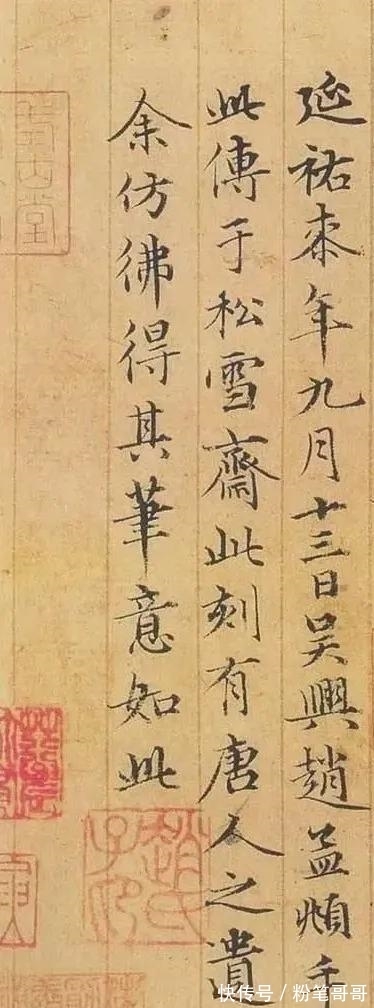 延祐桼年九月十三日吳興趙孟頫手
此傳于松雪齋此刻有唐人之遺
余仿彿得其筆意如此
趙氏子昂
快传号 / 粉笔哥哥